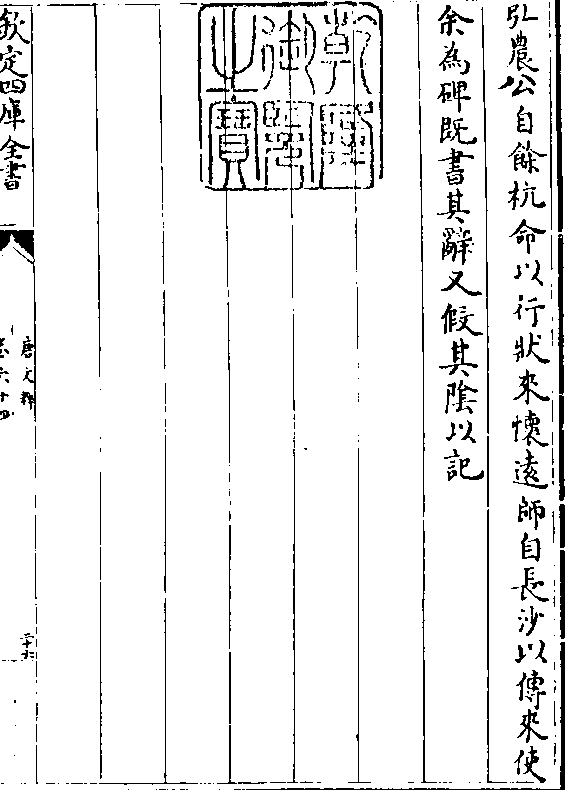 弘農公自餘杭命以行狀來懷遠師自長沙以傳來使
余為碑既書其辭又假其陰以記
乾隆御覽之寶
欽定四庫全書
唐文粹
卷六十四
二十六